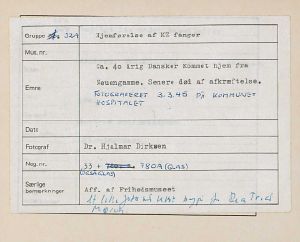 Gruppe 32A Hjemførelse af KZ fanger
Mus. nr.
Ca. 40 årig Dansker kommet hjem fra
Emne Neuengamme. Senere død af afkræftelse.
FOTOGRAFERET 3.3.45 PÅ KOMMUNE
HOSPITALET
Dato
Fotograf Dr. Hjalmar Dirksen
Neg. nr. 33 + 780A (GLAS)
(DESAGLAS)
Særlige
bemærkninger Aff. af Frihedsmuseet